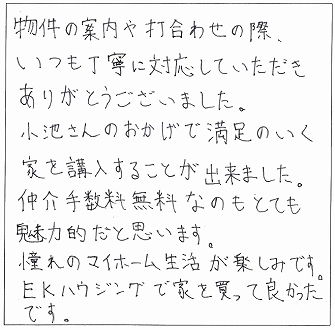 物件の案内や打合わせの際、
いつも丁寧に対応していただき
ありがとうございました。
小池さんのおかげで満足のいく
家を講入することが出来ました。
仲介手数料無料なのもとても
魅力的だと思います。
憧れのマイホーム生活が楽しみです。
EKハウジングで家を買って良かった
です。